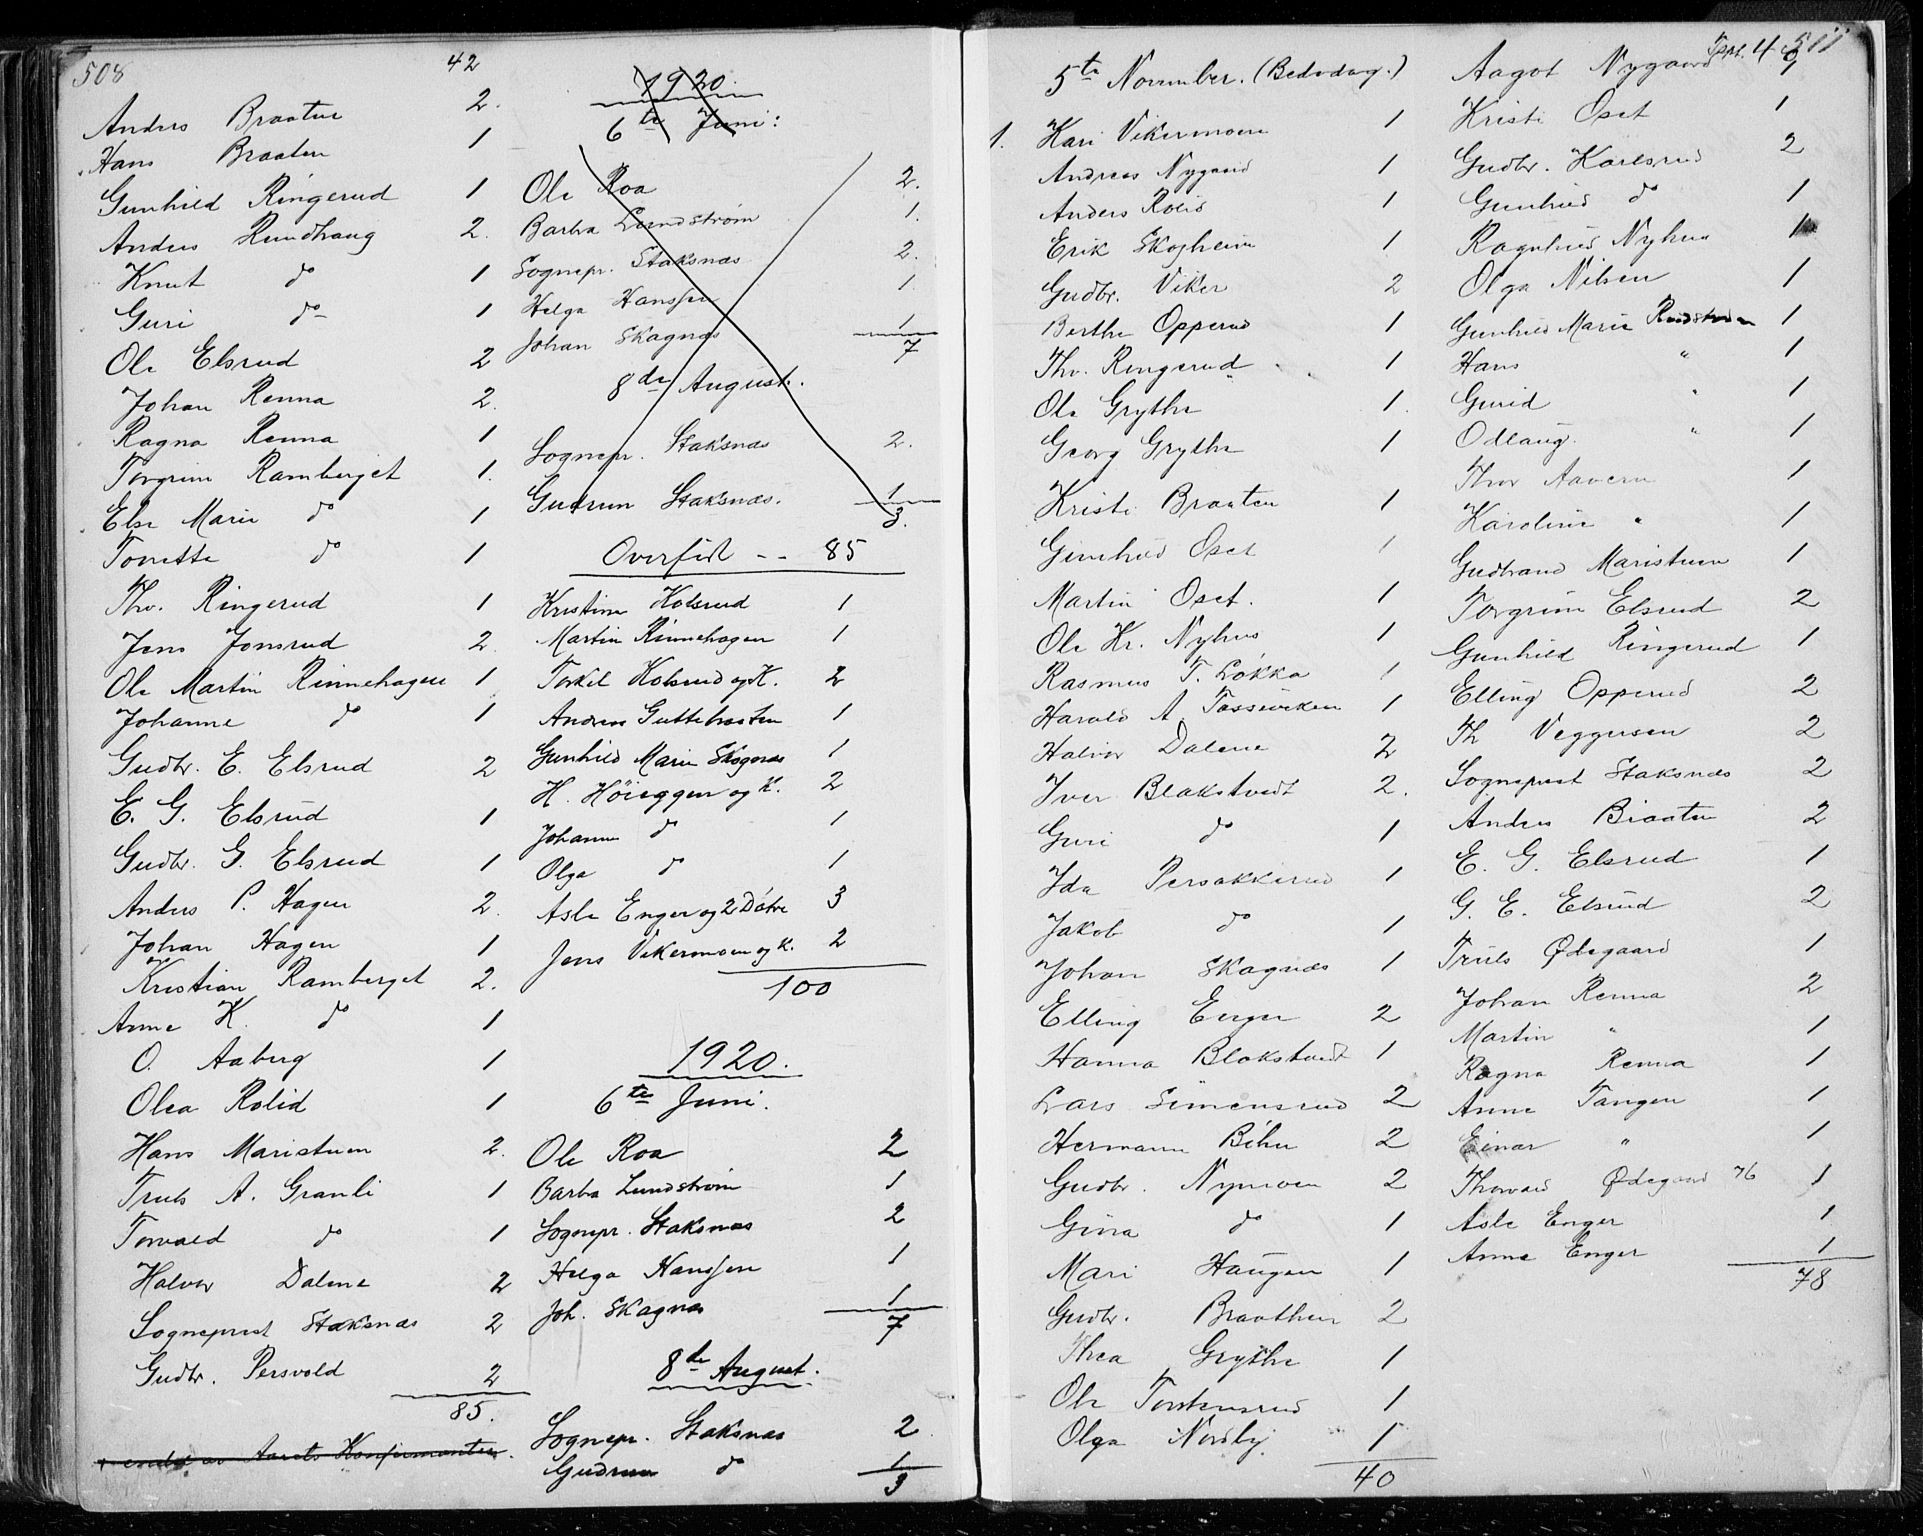 508
42
Anders Braaten 2.
Hans Braaten 1
Gunhild Ringerud 1
Anders Rundhaug 2.
Knut do 1
Guri do 1
Ole Elsrud 2
Johan Renna 2.
Ragna Renna 1
Torgrim Ramberget 1.
Else Marie do 1
Tonette do 1
Thv. Ringerud 1
Jens Jonsrud 2.
Ole Martin Rinnehagen 1
Johanne do 1
Gudbr. E. Elsrud 2
E. G. Elsrud 1
Gudbr. G. Elsrud 1
Anders P. Hagen 2.
Johan Hagen 1
Kristian Ramberget 2.
Anne K. do 1
O. Aaberg 1
Olea Rolid 1
Hans Maristuen 2.
Truls A. Granli 1
Torvald do 1
Halvor Dalene 2
Sogneprest Staksnæs 2
Gudbr. Persvold 2
85.
Aarets Konfirmanter.
1920.
6te Juni:
Ole Roa 2.
Barbra Lundstrøm 1.
Sognepr. Staksnæs 2.
Helga Hanssen 1.
Johan Skagnæs 1
7
8de August.
Sognepr. Staksnæs 2.
Gudrun Staksnæs. 1
3.
Overført -- 85
Kristine Kolsrud 1
Martin Rinnehagen 1
Torkel Kolsrud og K. 2
Andreas Guttebraaten 1
Gunhild Marie Skagnæs 1
H. Høieggen og K. 2
Johanne do 1
Olga do 1
Asle Enger og 2 Døtre 3
Jens Vikermoen og K. 2
100
1920.
6te Juni.
Ole Roa 2
Barbra Lundstrøm 1
Sognepr. Staksnæs 2
Helga Hanssen 1
Joh. Skagnæs 1
7
8de August.
Sognepr. Staksnæs 2
Gudrun do 1
3
5te November. (Bededag.)
1. Kari Vikermoen 1
Andreas Nygaard 1
Anders Rolid 1
Erik Skogheim 1
Gudbr. Viker 2
Berthe Opperud 1
Thv. Ringerud 1
Ole Grythe 1.
Georg Grythe 1
Kristi Braaten 1
Gunhild Oset 1
Martin Oset. 1
Ole Kr. Nyhus 1
Rasmus T. Løkka 1
Harald A. Tosseviken 1
Halvor Dalene 2
Iver Blakstvedt 2.
Guri do 1
Ida Persokkerud 1
Jakob do 1
Johan Skagnæs 1
Elling Enger 2
Hanna Blakstvedt 1
Lars Simensrud 2
Hermann Bihu 2
Gudbr. Nymoen 2
Gina do 1
Mari Haugen 1
Gudbr. Braathen 2
Thea Grythe 1
Ole Torstensrud 1
Olga Nordby 1
40
511
Trspt. 40
Aagot Nygaard 1
Kristi Oset 1
Gudbr. Karlsrud 2
Gunhild do 1
Ragnhild Nyhus 1
Olga Nilsen 1
Gunhild Marie 1
Hans " 1
Gurid " 1
Odlaug. " 1
Thor Aavern 1
Karoline " 1
Gudbrand Maristuen 1
Torgrim Elsrud 2
Gunhild Ringerud 1
Elling Opperud 2
Th Veggersen 2
Sogneprest Staksnæs 2
Anders Braaten 2
E. G. Elsrud 1
G. E. Elsrud 2
Truls Ødegaard 1
Johan Renna 2
Martin " 1
Ragna Renna 1
Anne Tangen 1
Einar " 1
Thorvald Ødegaard 76 1
Asle Enger 1
Anne Enger 1
78